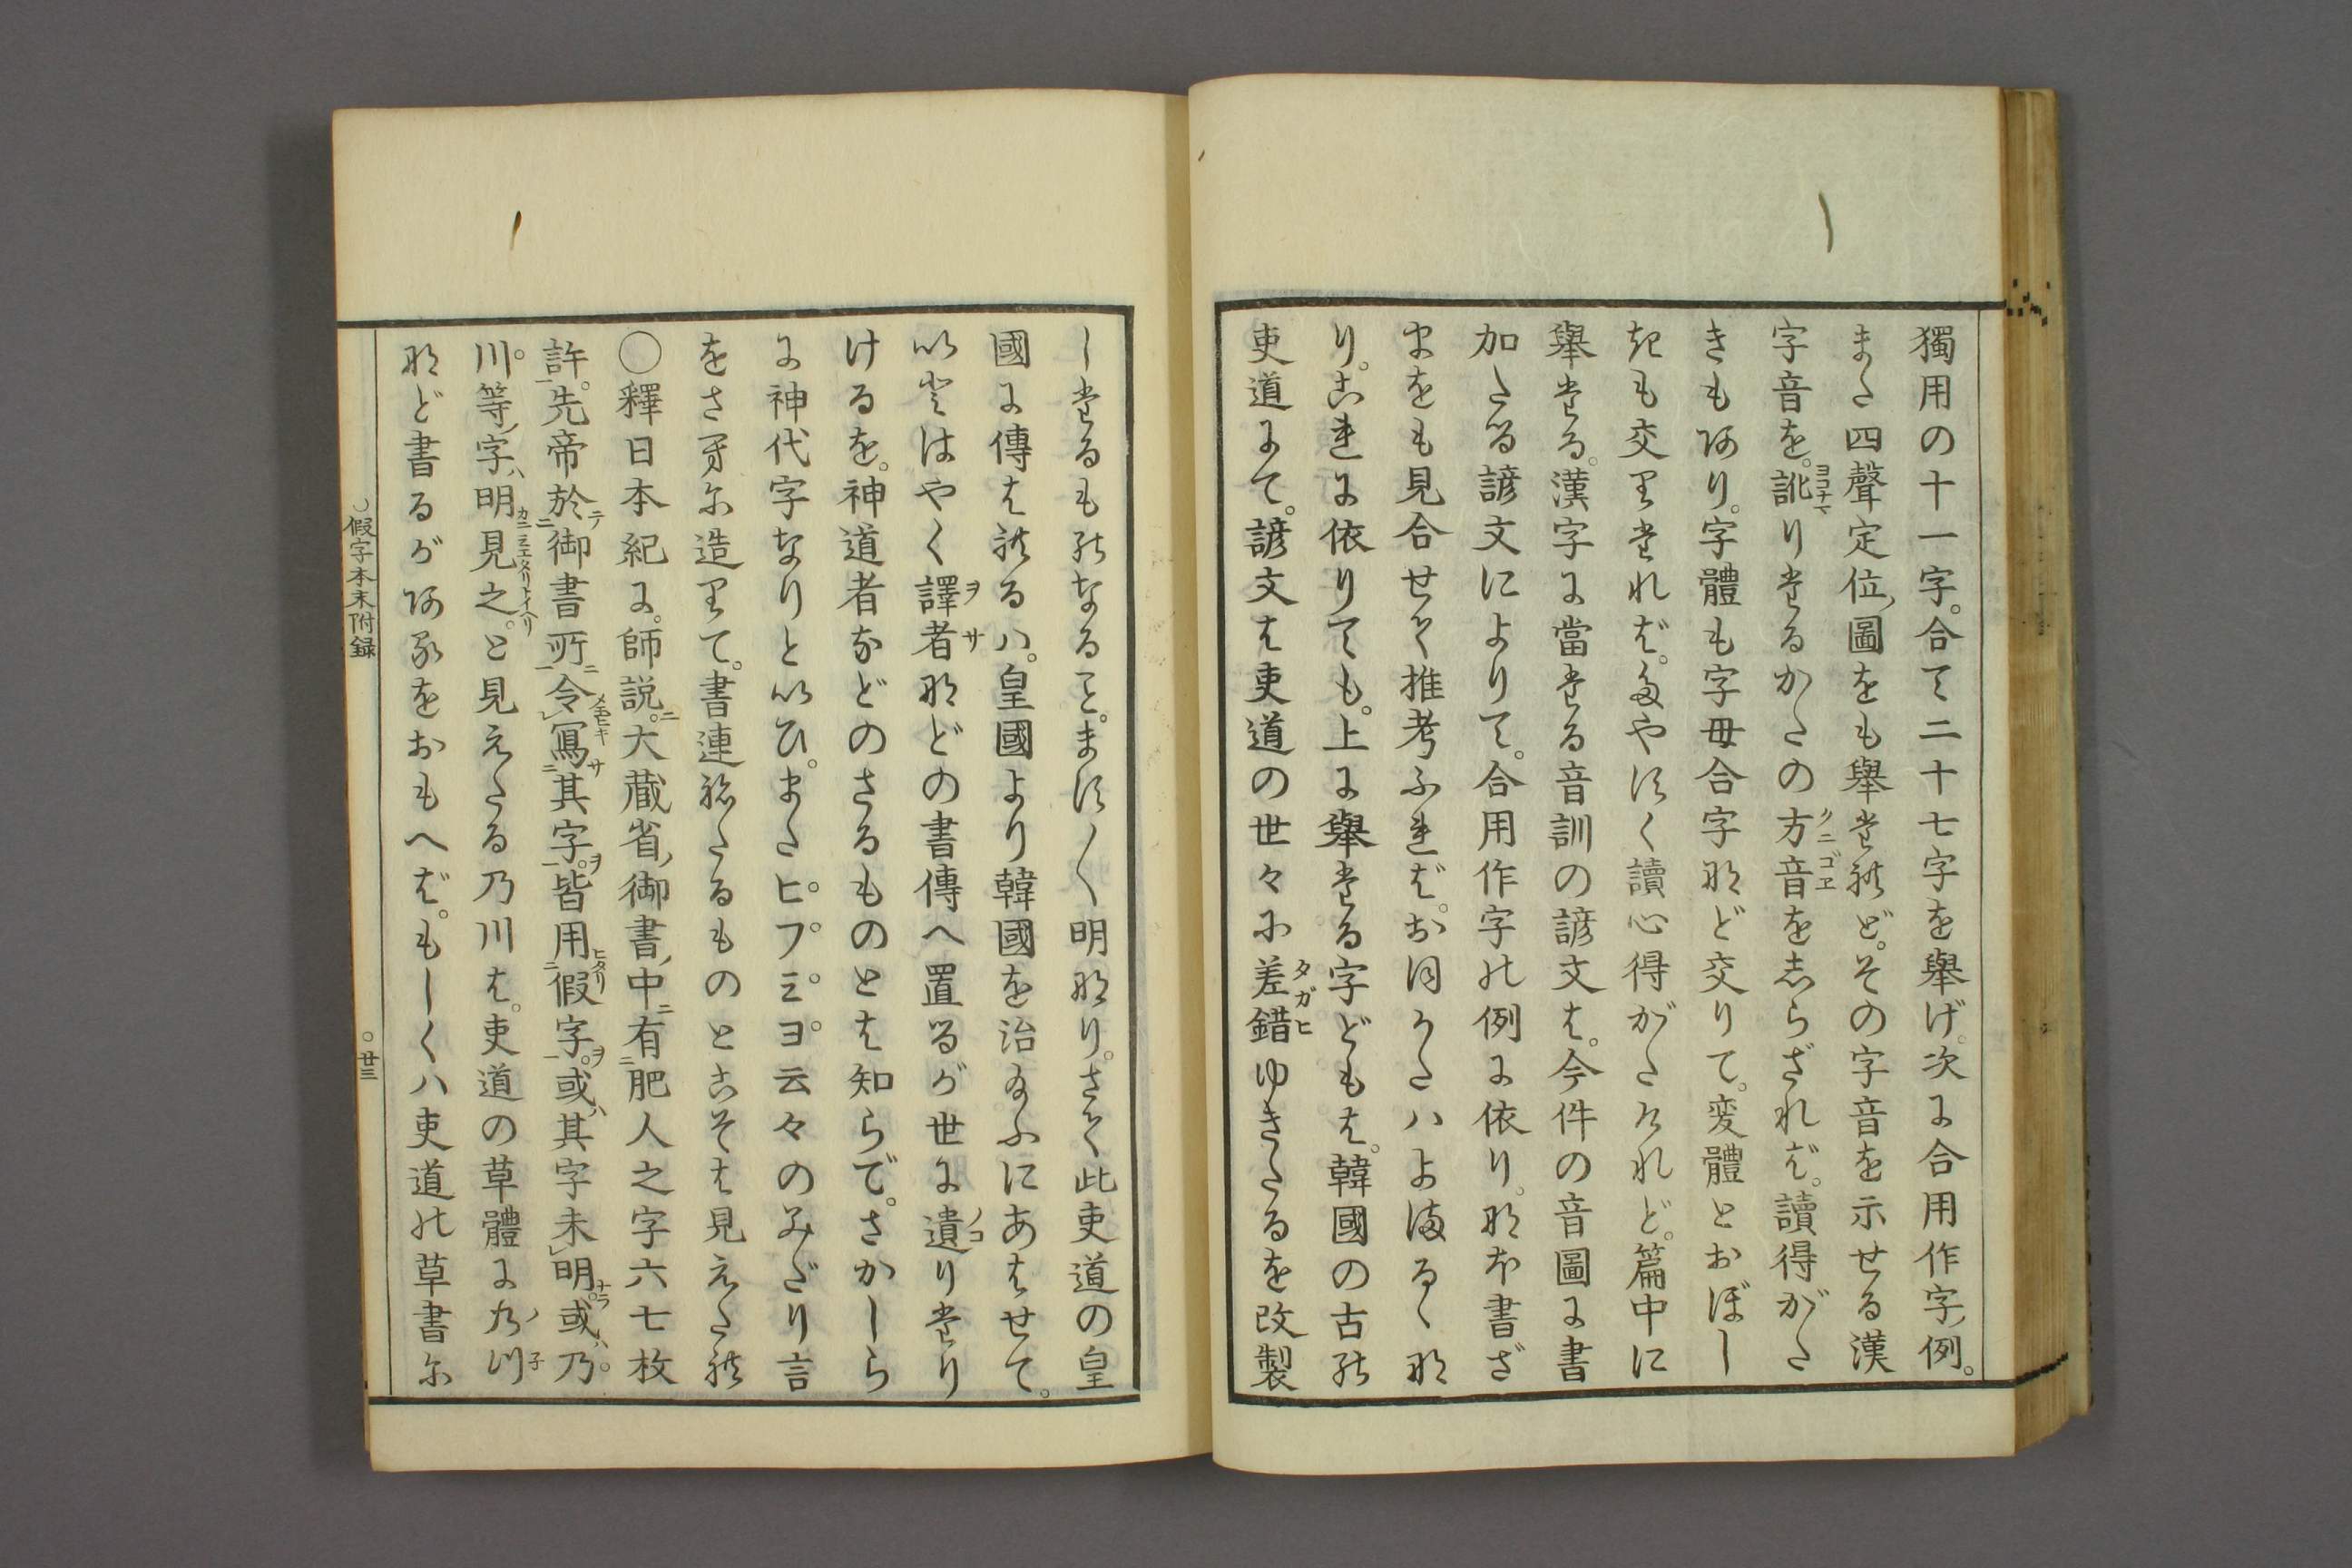 獨用の十一字。合て二十七字を舉げ。次に合用作字ノ例。
また四聲定位ノ圖をも舉たれど。その字音を示せる漢
字音を。訛りたるかたの方音をしらざれば。讀得がた
きもあり。字體も字母合字など交りて。変體とおぼし
きも交りたれば。たやすく讀心得がたけれど。篇中に
舉たる。漢字に當たる音訓の諺文は。今件の音圖に書
加たる諺文によりて。合用作字の例に依り。なほ書ざ
まをも見合せて推考ふれば。おほかたハよまるゝな
り。これに依りても。上に舉たる字どもは。韓國の古の
吏道にて。諺文は吏道の世々に差錯ゆきたるを改製
したるものなること。ます〳〵明なり。さて此吏道の皇
國に傳はれるハ。皇國より韓國を治給ふにあはせて。
いとはやく譯者などの書傳へ置るが世に遺りたり
けるを。神道者などのさるものとは知らで。さかしら
に神代字なりといひ。またヒ。フ。ミ。ヨ。云々のみだり言
をさへに造りて。書連ねたるものとこそは見えたれ
〇釋日本紀に。師説。大藏省ノ御書ノ中ニ有肥人之字六七枚
許。先帝於御書所令寫其字。皆用假字。或ハ其字未明。或ハ乃。
川。等ノ字ハ明見之。と見えたる乃川は。吏道の草體に
など書るがあるをおもへば。もしくハ吏道の草書に
假字本末附録
。廿三